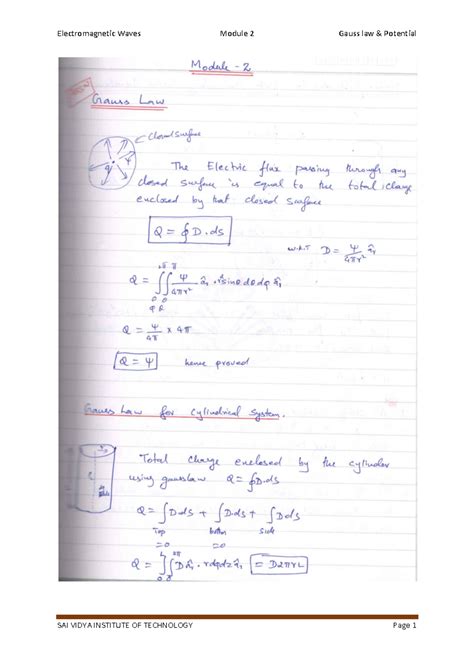 Electromagnetic Waves Module 2 Gauss law & Potential
Module - 2
Gauss Law
closed surface
ψ
The Electric flux passing through any
closed surface is equal to the total charge
enclosed by that closed surface
Q = ∮ D . ds
w.k.t D = ψ/4πr² â_r
Q = ∫∫ ψ/4πr² â_r . r² sinθ dθ dφ â_r
Q = ψ/4π × 4π
Q = ψ hence proved
Gauss Law for Cylindrical System.
Total charge enclosed by the cylinder
using gauss law Q = ∮ D.ds
Q = ∫ D.ds + ∫ D.ds + ∫ D.ds
Top bottom side
=0 =0
∫∫ D â_r . r dφ dz â_r = D2πrL
SAI VIDYA INSTITUTE OF TECHNOLOGY Page 1